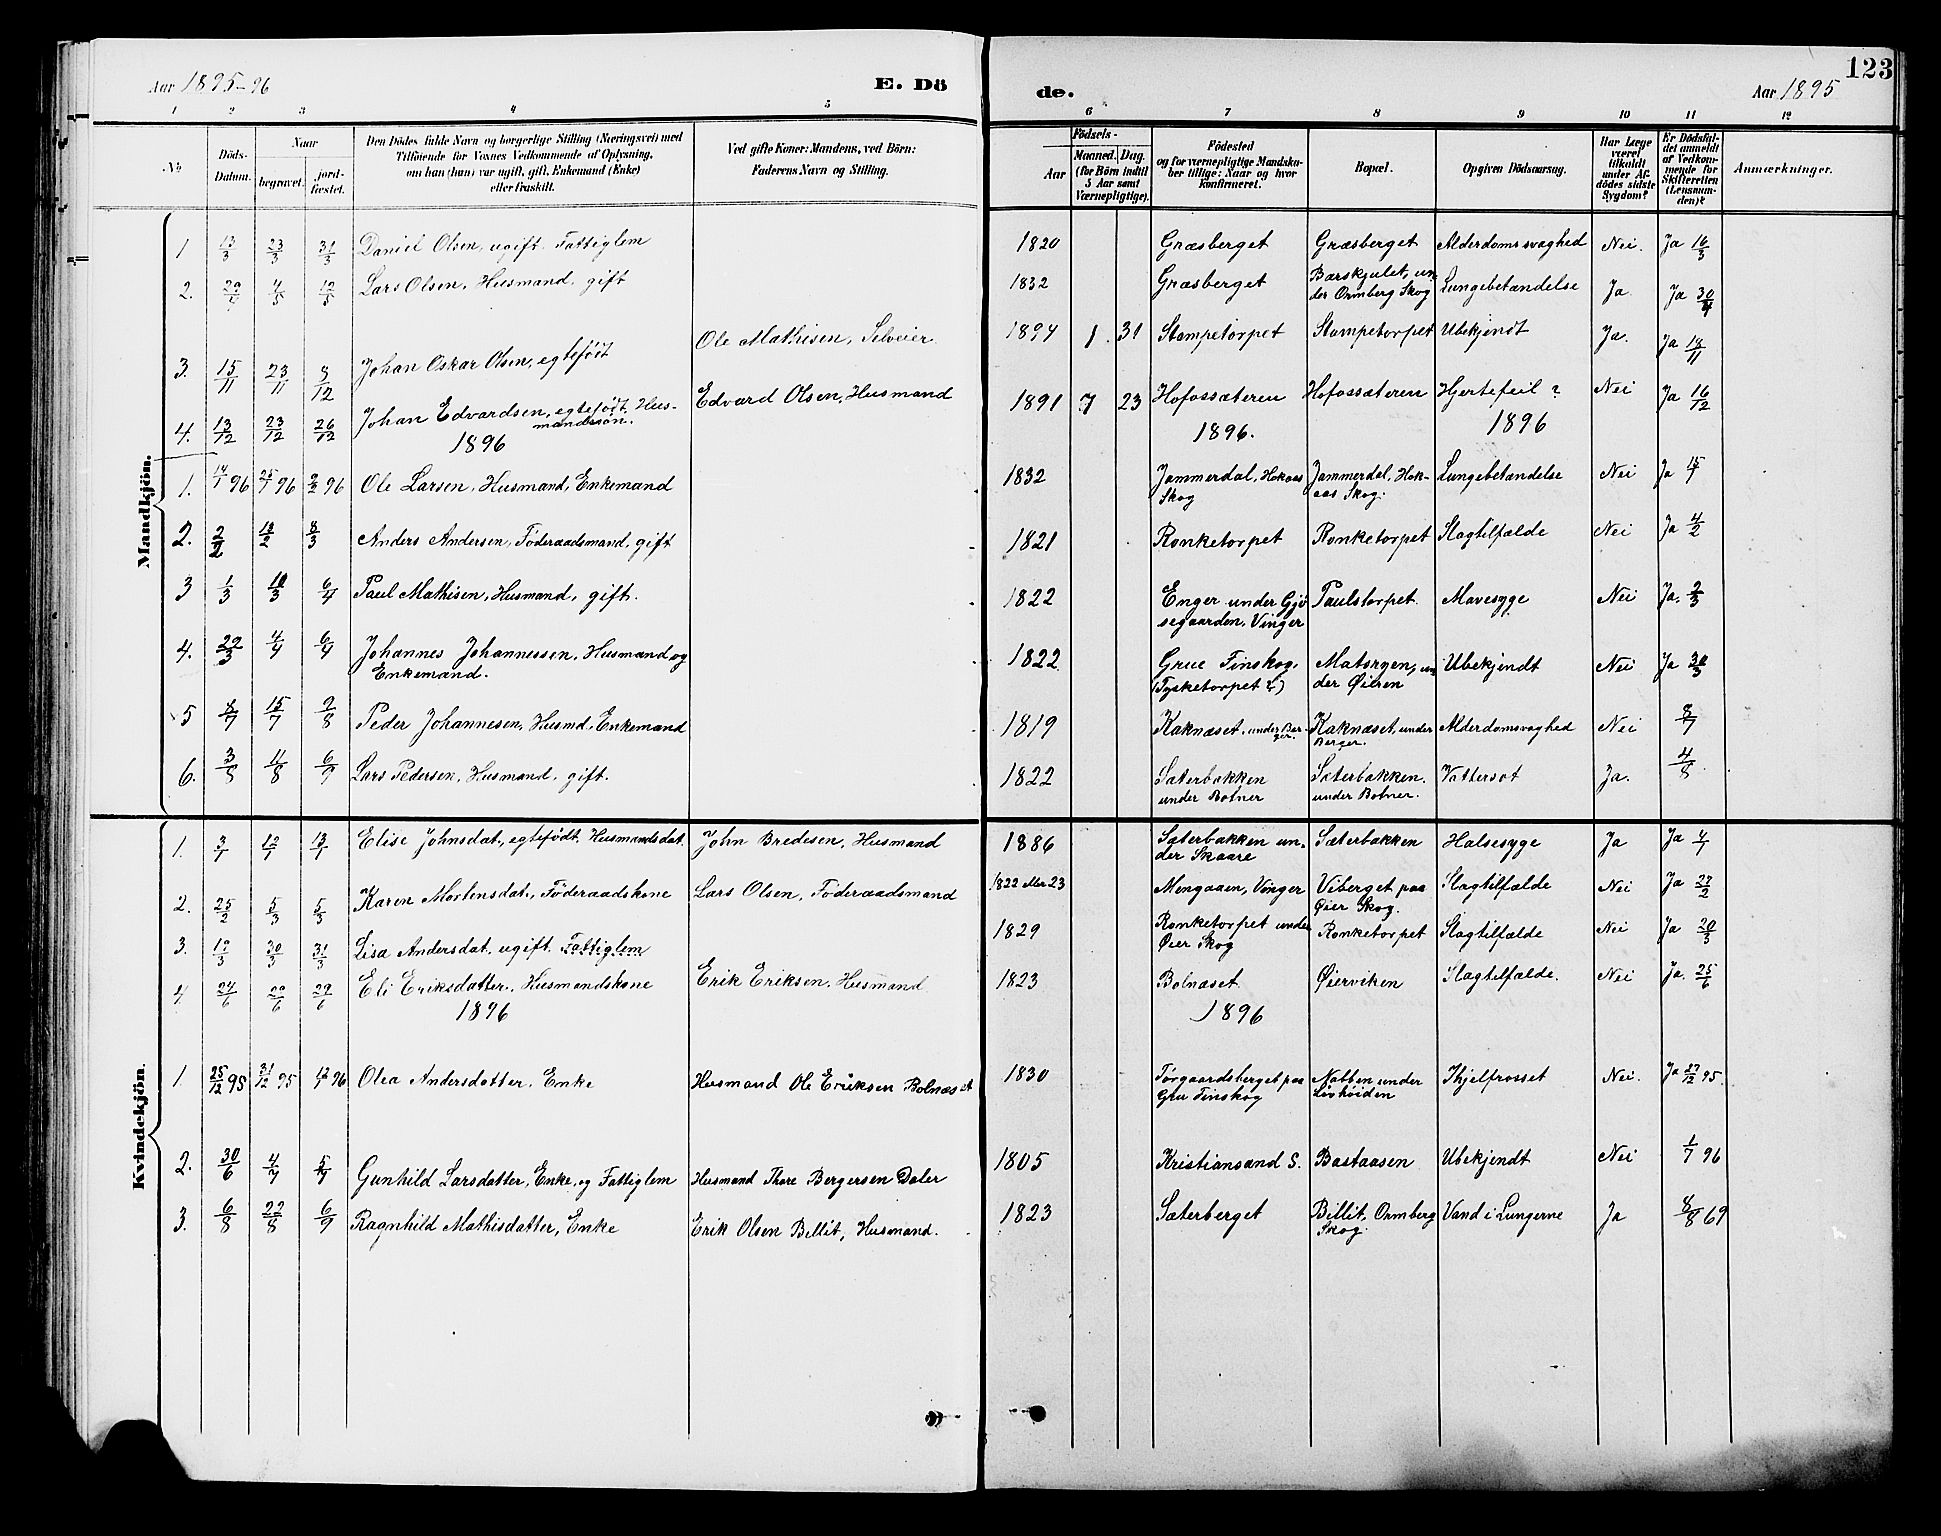 Aar 1895-96
E. Dö
de.
Aar 1895
123
1 2 3 4 5 6 7 8 9 10 11 12
No
Döds-Datum.
Naar
begravet.
jord-fæstet.
Den Dödes fulde Navn og borgerlige Stilling (Næringsvei) med
Tilföiende for Voxnes Vedkommende af Oplysning,
om han (hun) var ugift, gift, Enkemand (Enke)
eller fraskilt.
Ved gifte Koner: Mandens, ved Börn:
Faderens Navn og Stilling.
Födsels-
Aar
Maaned. Dag.
(for Börn indtil
5 Aar samt
Værnepligtige).
Födested
og for værnepligtige Mandska-
ber tillige: Naar og hvor
konfirmeret.
Bopæl.
Opgiven Dödsaarsag.
Har Læge
været
tilkaldt
under Af-
dödes sidste
Sygdom?
Er Dödsfal-
det anmeldt
af Vedkom-
mende for
Skifteretten
(Lensman-
den)?
Anmærkninger.
Mandkjön.
1 13/3 23/3 31/3 Daniel Olsen, ugift. Fattiglem 1820 Græsberget Græsberget Alderdomssvaghed Nei. Ja 16/3
2. 29/4 4/5 12/5 Lars Olsen, Husmand, gift 1832 Græsberget Barskjulet, un-
der Ormberg Skog Lungebetændelse Ja. Ja 30/4
3. 15/11 23/11 8/12 Johan Oskar Olsen, egtefödt Ole Mathisen, Selveier. 1894 1. 31 Stampetorpet Stampetorpet Ubekjendt Ja. Ja 18/11
4. 13/12 23/12 26/12 Johan Edvardsen, egtefödt. Hus-
mandssön. Edvard Olsen, Husmand 1891 7 23 Hofossæteren Hofossæteren Hjertefeil ? Nei Ja 16/12
1896 1896. 1896
1. 14/1 96 25/1 96 2/2 96 Ole Larsen, Husmand, Enkemand 1832 Jammerdal, Hokaas
Skog Jammerdal, Hok-
aas Skog. Lungebetændelse Nei Ja
2. 2/2 12/2 8/3 Anders Andersen, Föderaadsmand, gift 1821 Ronketorpet Ronketorpet Slagtilfælde Nei Ja 4/2
3 1/3 10/3 6/4 Paul Mathisen, Husmand, gift. 1822 Enger under Gjö
segaarden, Vinger Paulstorpet. Mavesyge Nei Ja. 2/3
4. 29/3 4/4 6/4 Johannes Johannessen, Husmand, og
Enkemand. 1822 Grue Finskog.
(Tysketorpet ?) Matorpen, un-
der Øieren Ubekjendt Nei Ja 30/3
5 8/7 15/7 2/8 Peder Johannesen, Husmd, Enkemand 1819 Kaknæset, under Ber-
ger. Kaknæset, under
Berger. Alderdomsvaghed Nei 8/7
6. 3/8 11/8 6/9 Lars Pedersen, Husmand, gift. 1822 Sæterbakken
under Botner Sæterbakken.
under Botner. Vattersot Ja. 4/8
Kvindekjön.
1. 3/1 12/1 13/1 Elise Johnsdat., egtefödt. Husmandsdat. John Bredesen, Husmand 1886 Sæterbakken un-
der Skaare Sæterbakken Halsesyge Ja Ja 4/1
2. 25/2 5/3 5/3 Karen Mortensdat., Föderaadskone Lars Olsen, Föderaadsmand 1822 eller 23 Mengaaen, Vinger Viberget paa
Øier Skog. Slagtilfælde Nei Ja 27/2
3. 19/3 30/3 31/3 Lisa Andersdat. ugift. Fattiglem 1829 Ronketorpet under
Øier Skog Ronketorpet Slagtilfælde Nei Ja 20/3
4. 24/6 29/6 29/6 Eli Eriksdatter, Husmandskone Erik Eriksen, Husmand 1823 Bolnæset Øierviken Slagtilfælde. Nei Ja. 25/6
1896 1896
1. 25/12 95 31/12 95 12/1 96 Olea Andersdatter, Enke Husmand Ole Eriksen Bolnæset 1830 Torgaardsberget paa
Gru Finskog Nabben under
Lövhöiden Ihjelfrosset Nei. Ja 27/12 95.
2. 30/6 4/7 5/7 Gunhild Larsdatter, Enke, og Fattiglem Husmand Thore Bergersen Daler 1805 Kristiansand S. Bastaasen Ubekjendt Nei 1/7 96
3. 6/8 22/8 6/9 Ragnhild Mathisdatter, Enke Erik Olsen Billit, Husmand. 1823 Sæterberget Billit, Ormberg
Skog. Vand i Lungerne Ja 8/8 69